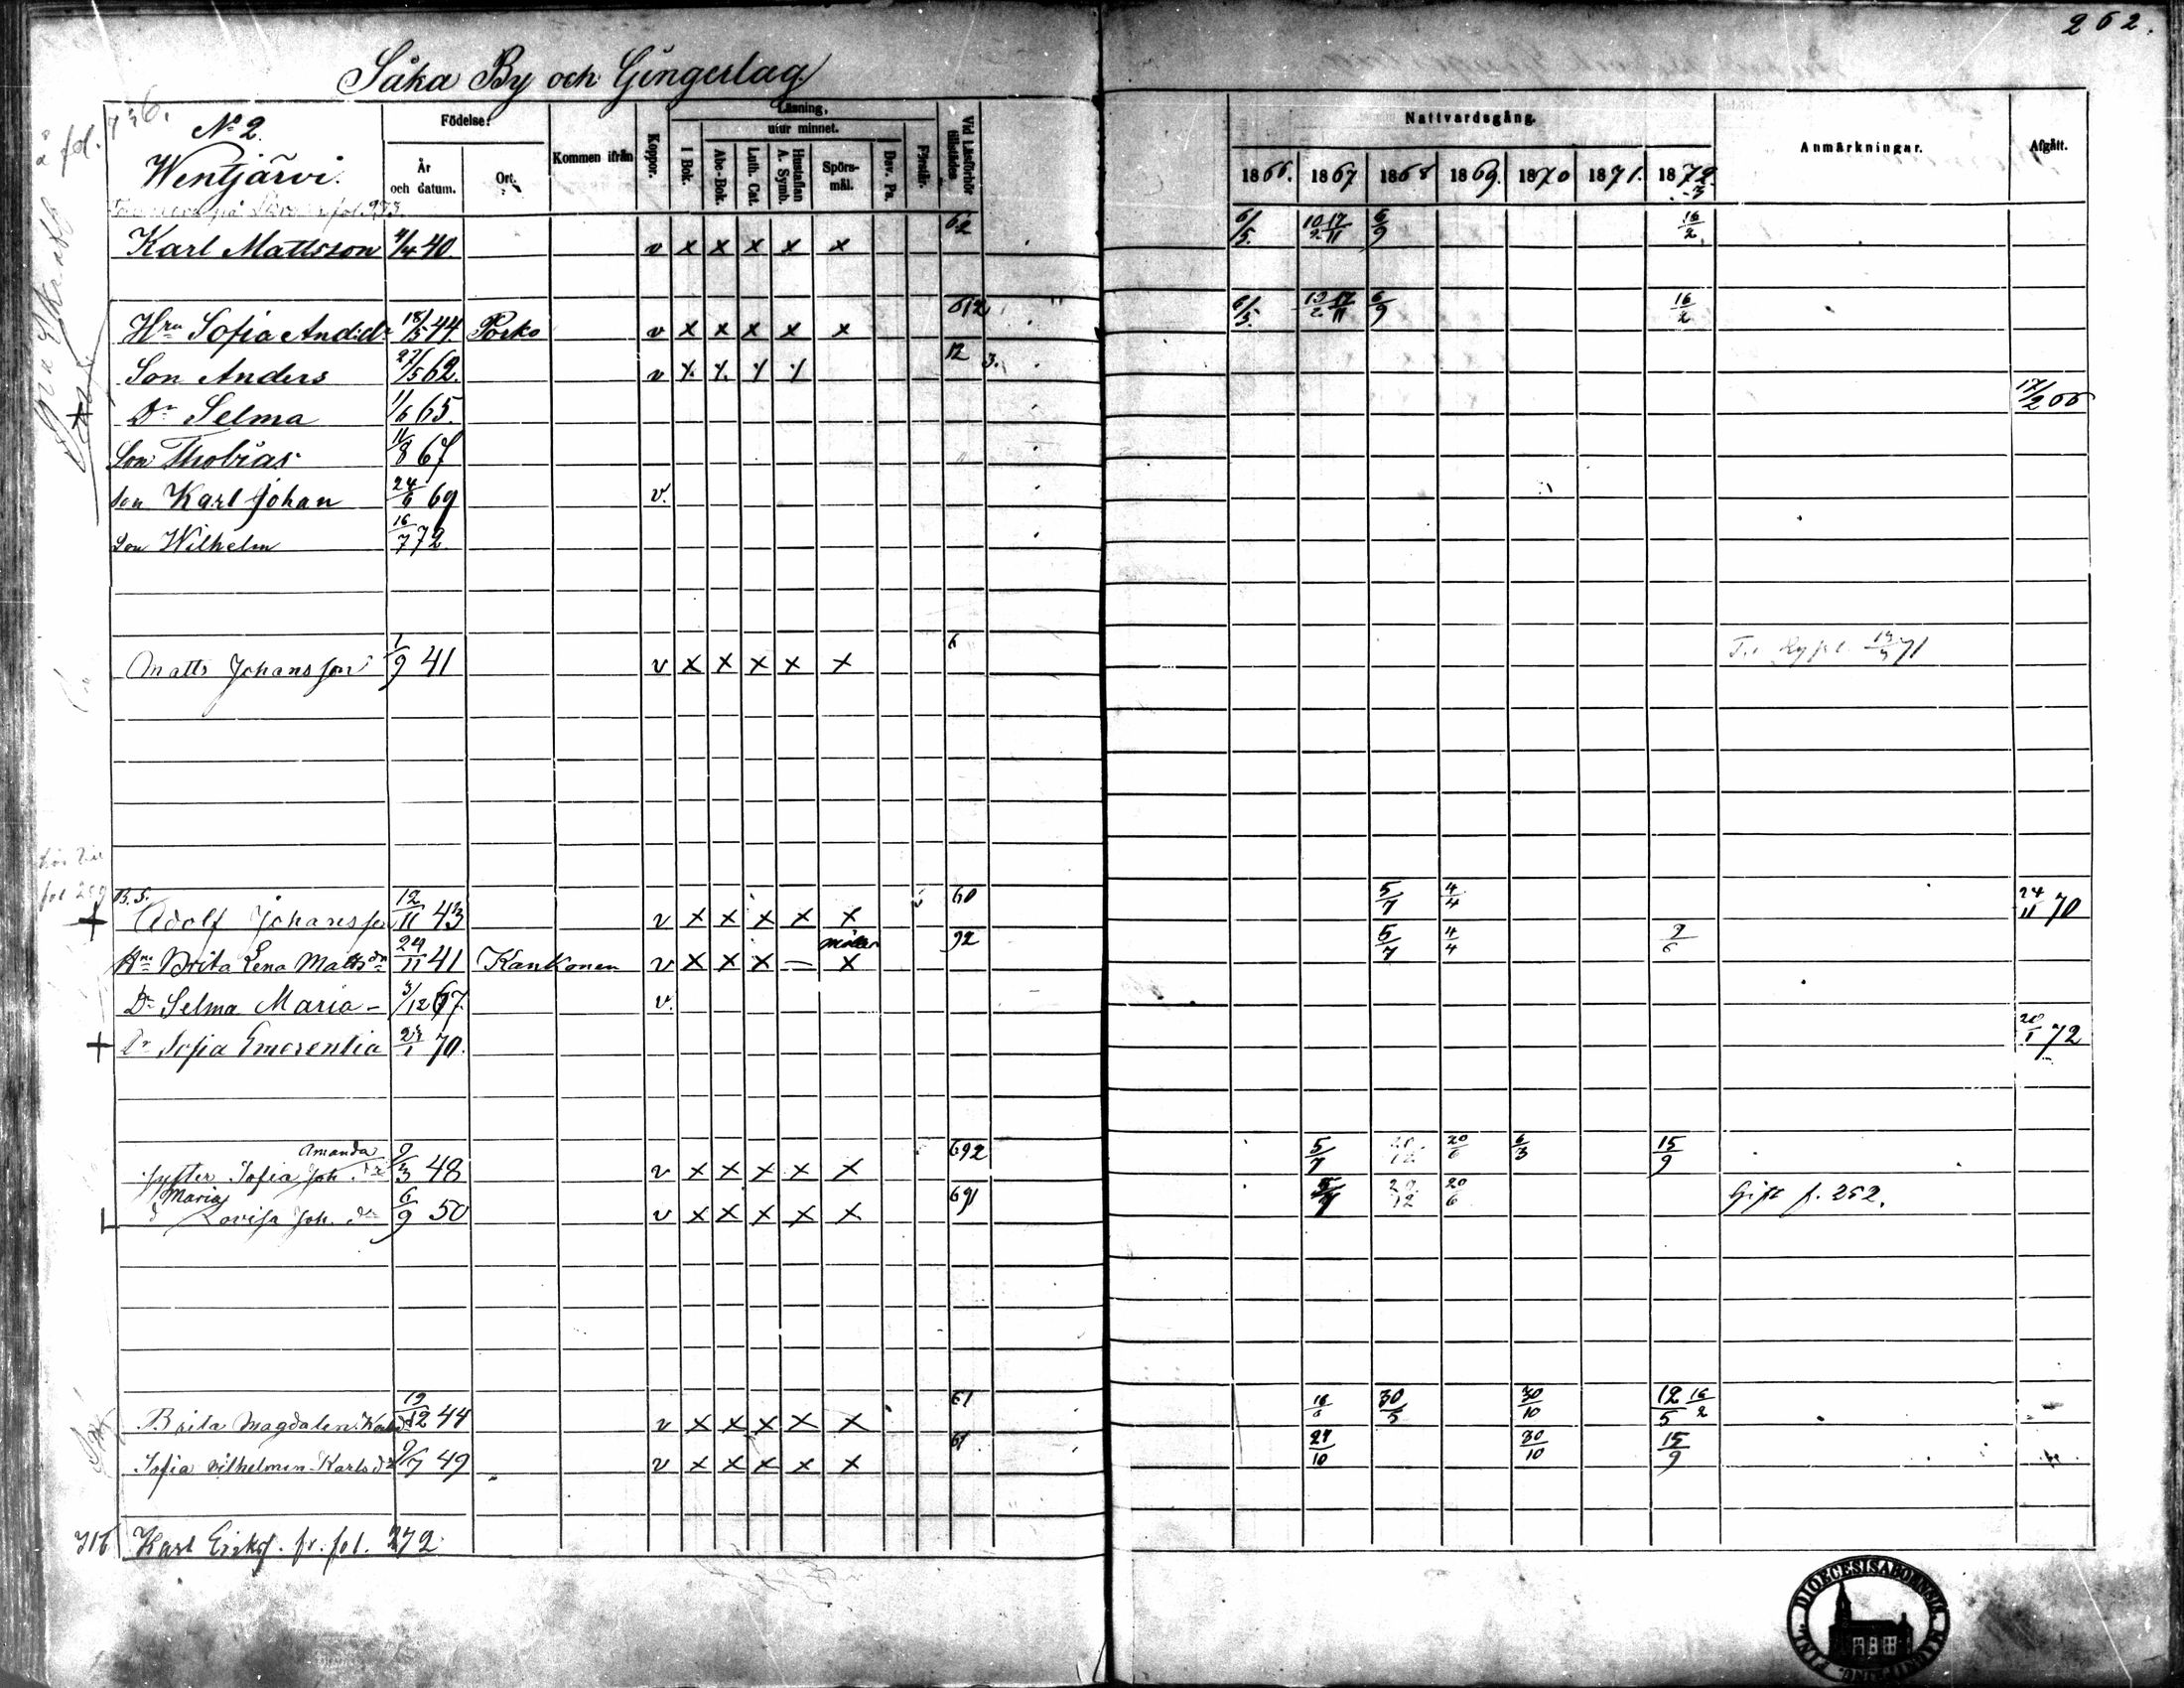 262.
Såka By och Gingerlag
å fol. 736.
No 2.
Wentjärvi.
Födelse:
År och datum.
Ort.
Kommen ifrån
Koppor.
Läsning,
utur minnet.
I Bok.
Abc-Bok.
Luth. Cat.
Hustaflan A. Symb.
Spörs-mål.
Dav. Ps.
Förstår.
Vid Läsförhör tillstädes
Nattvardsgång.
1866. 1867 1868 1869. 1870 1871. 1872.
-3
Anmärkningar.
Afgått.
Karl Mattsson 4/4 40. v x x x x x 62 6/5. 10/2 17/11 6/9 16/2
Hru Sofia And:dr 18/5 44. Porko v x x x x x 612 6/5. 10/2 17/11 6/9 16/2
Son Anders 27/5 62. v 12 3.
Dr Selma 1/6 65. 17/2 66
Son Thobias 11/8 67
Son Karl Johan 24/6 69 v.
Son Wilhelm 16/7 72
Matts Johansson 1/9 41 v x x x x x 6 71
fol 259
B. S.
+ Adolf Johansson 12/11 43 v x x x x x 60 5/7 4/4 24/11 70
Hru Brita Lena Matts dr 24/11 41 Kankonen v x x x — x 92 5/7 4/4 9/6
Dr Selma Maria - 3/12 67. v.
+ Dr Sofia Emerentia 1 70. 20/1 72
Amanda
syster Sofia Joh. dr 9/3 48 v x x x x x 692 5/7 20/6 6/3 15/9
Maria
d Lovisa Joh. dr 6/9 50 v x x x x x 691 20/6 Gift f. 252.
Brita Magdalen. Karlsdr 19/12 44 v x x x x x 61 16/6 30/5 30/10 12/5 16/2
Sofia Wilhelmin. Karlsdr 9/7 49 v x x x x x 61 27/10 30/10 15/9
716 Karl Eriks. fr. fol. 272
DIOECESIS ABOENSIS